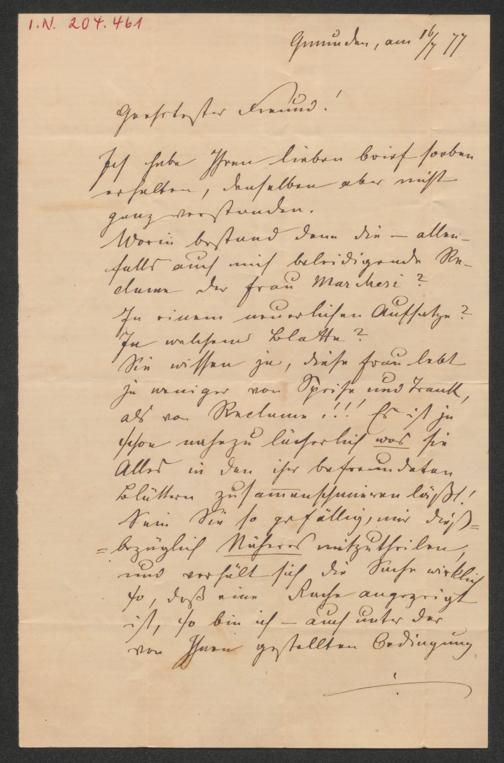 I.N. 204.461
Gmunden, am 16/7 77
Geehrtester Freund!
Ich habe Ihren lieben Brief soeben
erhalten, denselben aber nicht
ganz verstanden.
Worin bestand denn die – allen-
falls auch mich beleidigende Re-
clame der Frau Marchesi?
In einem neuerlichen Aufsatze?
In welchem Blatte?
Sie wissen ja, diese Frau lebt
ja weniger von Speise und Trank,
als von Reclame!!! Es ist ja
schon nahezu lächerlich was sie
Alles in den ihr befreundeten
Blättern zusammenschmieren läßt!
Sein Sie so gefällig, mir dieß=
=bezüglich Näheres mitzutheilen,
und verhält sich die Sache wirklich
so, daß eine Rache angezeigt
ist, so bin ich – auch unter der
von Ihnen gestellten Bedingung